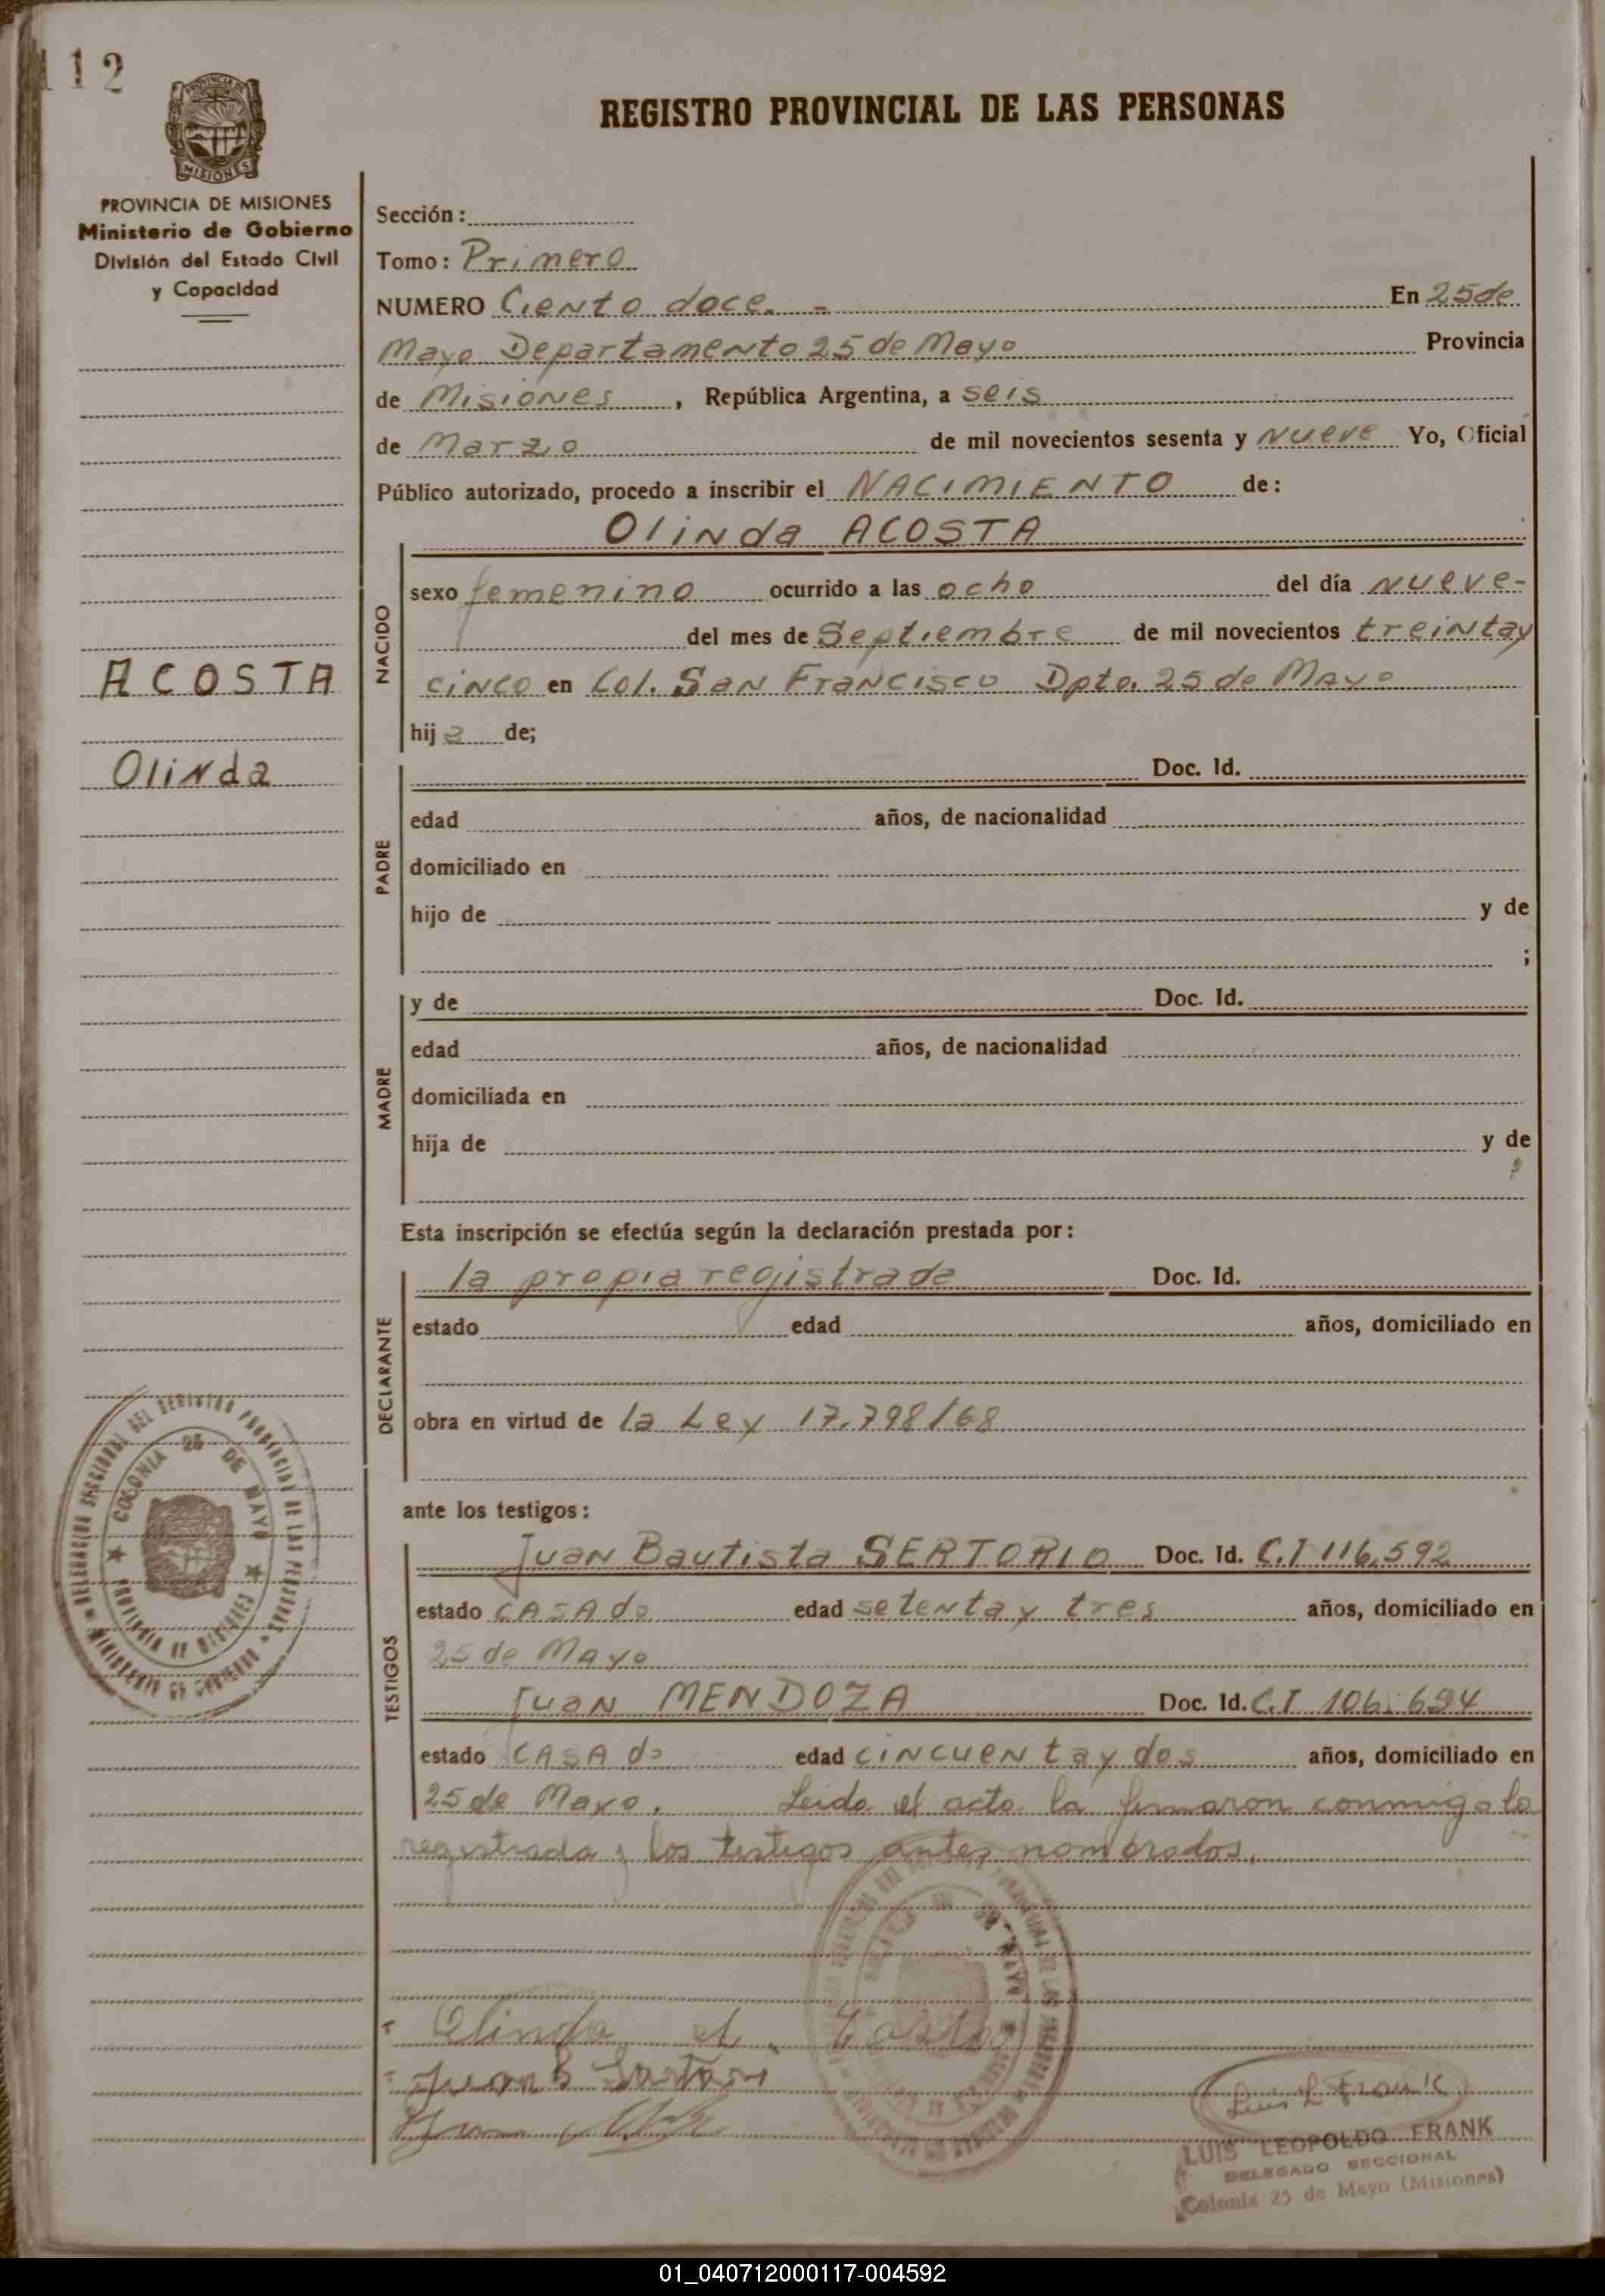 112
MISIONES
PROVINCIA DE MISIONES
Ministerio de Gobierno
División del Estado Civil
y Capacidad
REGISTRO PROVINCIAL DE LAS PERSONAS
Sección:
Tomo: Primero
NUMERO Ciento doce. - En 25 de
Mayo Departamento 25 de Mayo Provincia
de Misiones, República Argentina, a seis
de Marzo de mil novecientos sesenta y Nueve Yo, Oficial
Público autorizado, procedo a inscribir el NACIMIENTO de:
Olinda ACOSTA
NACIDO
sexo femenino ocurrido a las ocho del día nueve-
del mes de Septiembre de mil novecientos treinta y
cinco en Col. San Francisco Dpto. 25 de Mayo
hija de;
ACOSTA
Olinda
PADRE
Doc. Id.
edad años, de nacionalidad
domiciliado en
hijo de y de
;
MADRE
y de Doc. Id.
edad años, de nacionalidad
domiciliada en
hija de y de
Esta inscripción se efectúa según la declaración prestada por:
DECLARANTE
la propia registrada Doc. Id.
estado edad años, domiciliado en
obra en virtud de la Ley 17.798/68
ante los testigos:
TESTIGOS
Juan Bautista SERTORIO Doc. Id. C.I 116.592
estado casado edad setenta y tres años, domiciliado en
25 de Mayo
Juan MENDOZA Doc. Id. C.I 106.694
estado casado edad cincuenta y dos años, domiciliado en
25 de Mayo. Leido el acto la firmaron conmigo la
registrada y los testigos antes nombrados.
DELEGACION SECCIONAL DEL REGISTRO PROVINCIAL DE LAS PERSONAS
MINISTERIO DE GOBIERNO
COLONIA 25 DE MAYO
PROVINCIA DE MISIONES
Olinda
Juan B Sertori
Juan
Luis L Frank
LUIS LEOPOLDO FRANK
DELEGADO SECCIONAL
Colonia 25 de Mayo (Misiones)
01_040712000117-004592